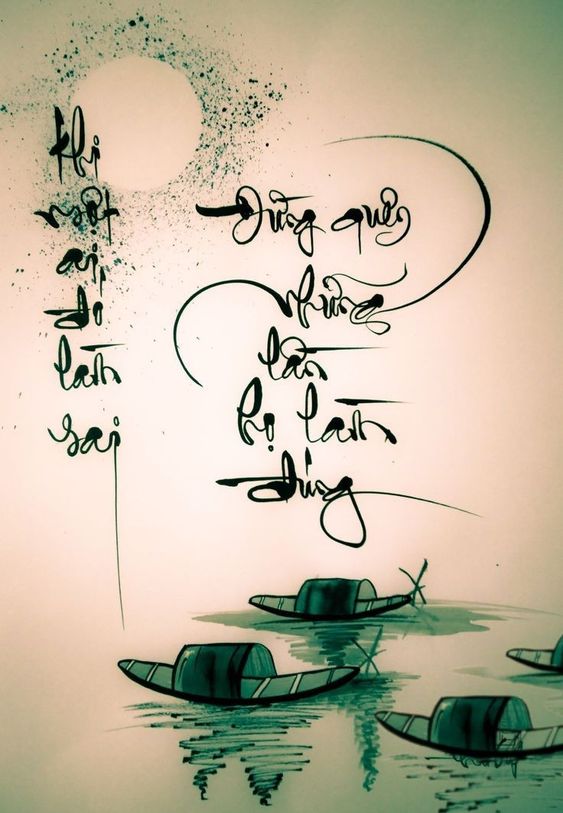 Khi
một
ai
đó
làm
sai
Đừng quên
những
lần
họ làm
đúng